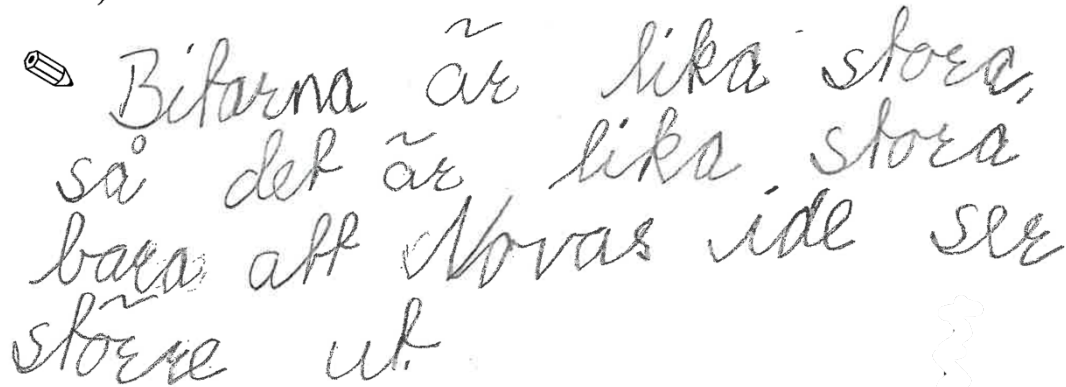 Bitarna är lika stora,
så det är lika stora
bara att Novas ide ser
större ut.